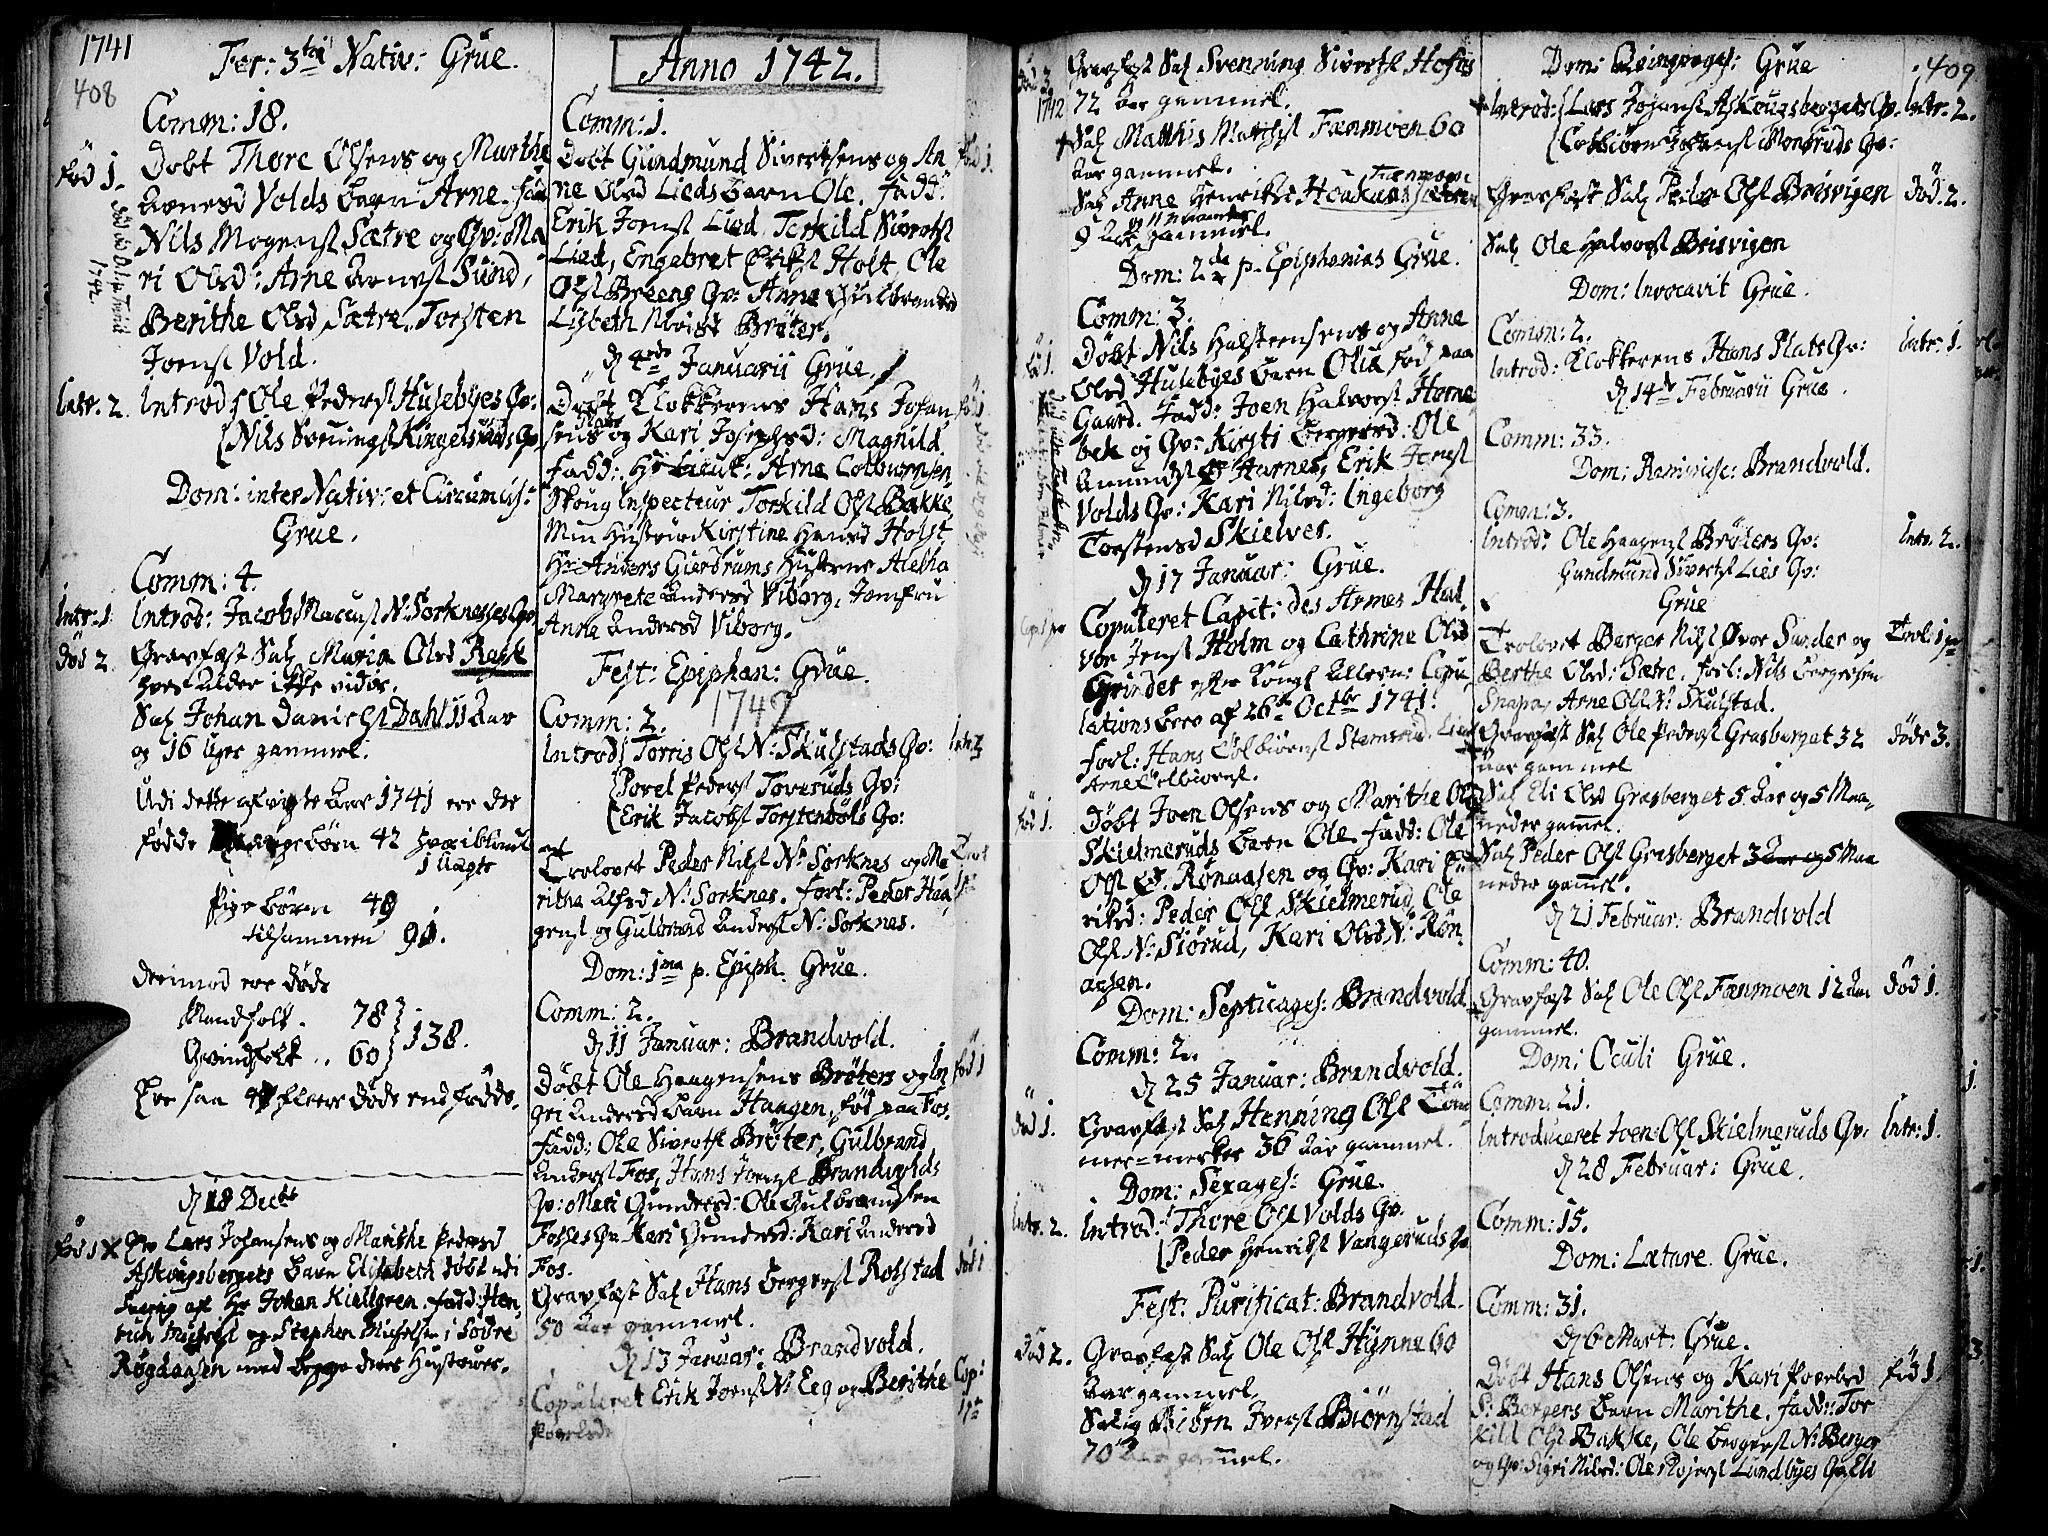 1741
408
Fer: 3tia Nativ: Grue.
Comm: 18.
Død 1.
Døbt Thore Olsens og Marthe
Arnesd Volds Barn Arne. fad
Nils Mogensl Sætre og Qv: Ma
ri Olsd: Arne Arnesl Sund,
Berithe Olsd Sætre, Torsten
Joensl Vold.
1742
Intr. 2
Introd Ole Pedersl Husebyes Qv:
Nils Svenningsl Ringelsruds Qv.
Dom: inter Nativ: et Circumcis:
Grue.
Comm: 4.
Intr: 1
Introd: Jacob N: Sorknesses Qv
Død 2
Gravfæst Sal Maria Olsd Rask
hves alder ikke vides.
Sal Johan Danielsl Dahl 11 Aar
og 16 Uger gammel.
Udi dette afvigte Aar 1741 ere der
fødde Børn 42
Pige børn 49
tilsammen 91.
Derimod ere døde
Mandfolk. 78
Qvindfolk .. 60 } 138.
Ere saa 47 fleere døde end fødde.
d 18 Decbr
fød 1 X
Lars Johansens og Marithe Pedersd
Askougsbergets Barn Elisabeth døbt udi
af Hr Johan Kiellgren. fadd: Hen
rich Michelsl og Stephen Michelsen i Södre
Røgdaasen med begge deres Hustruer.
Anno 1742.
Comm: 1.
fød 1.
Døbt Gundmund Sivertsens og An
ne Olsd Lieds Barn Ole. fadd:
Erik Jonsl Lied, Torkild Sivertsl
Lied, Engebret Eriksl Holt, Ole
Olsl Breeng Qv: Anne Gulbrandsd
Lisbeth Brøter.
d 4de Januarii Grue.
Døbt Klokkerens Hans Johan
sens Plats og Kari Josephsd: Magnild.
Fadd: Hr Lieut: Arne Colbiørnsen,
Skoug Inspecteur Torkild Olsl Bakke,
Min Hustrue Kirstine Hansd Holst
Hr Anders Gierdrums Hustrue Aletha
Margrete Andersd Viborg, Jomfru
Anna Andersd Viborg.
Fest: Epiphan: Grue.
1742
Comm: 2.
Introd Torris Olsl N: Skulstads Qv:
Povel Pedersl Toveruds Qv:
Erik Jacobsl Torstenbøls Qv:
Intr. 3
Trolovet Peder Nilsl N: Sorknes og Ma
ritha Alfsd N: Sorknes. forl: Peder Haa
gensl og Gulbrand Andersl N: Sorknes.
Dom: 1ma p. Epiph. Grue.
Comm: 2.
d 11 Januar: Brandvold.
fød 1
Døbt Ole Haagensens Brøters og In
geri Andersd Barn Haagen, fød paa Fos.
Fadd: Ole Sivertsl Brøter, Gulbrand
Andersl Fos, Hans Joensl Brandvolds
Qv: Mari Gundersd: Ole Gulbrandsen
Fosses Qv Kari Gundersd: Kari Andersd
Fos.
Død 1
Gravfæst Sal Hans Bergersl Rotstad
50 Aar gammel.
d 13 Januar: Brandvold.
Cop: 1 par
Copuleret Erik Joensl N: Eeg og Berithe
Povelsd
Død 3
1742
Gravfæst Sal Svenning Sivertsl Hofos
72 Aar gammel.
Sal Matthis Matthisl Fænmoen 60
Aar gammel.
Fænmoen
Sal Anne Henriksd
9 Aar gammel.
Dom: 2da p. Epiphanias Grue.
Comm: 3.
fød 1.
Døbt Nils Halsteensens og Anne
Olsd Husebyes Barn Olia fød paa
Gaard. Fadd: Joen Halvorsl Horne
bek og Qv: Kirsti Bergersd: Ole
Amundsl Harnes, Erik Jonsl
Volds Qv: Kari Nilsd: Ingeborg
Torstensd Skielver.
d 17 Januar: Grue.
Cop: 1 par
Copuleret Capit: des Armes Hal
vor Jensl Holm og Cathrine Olsd
Grindet efter Kongl Allern: Copu
lations brev af 26de Octbr 1741.
Forl: Hans Colbiørnsl Stemsrud, Lieut
Arne Colbiørnsl.
fød 1.
Døbt Joen Olsens og Marithe Olsd
Skielmeruds Barn Ole. Fadd: Ole
Olsl Rønaasen og Qv: Kari Ei
riksd: Peder Olsl Skielmerud, Ole
Olsl N: Siørud, Kari Olsd N: Røn
aasen.
Dom: Septuages: Brandvold
Comm: 2.
d 25 Januar: Brandvold.
Død 1.
Gravfæst Sal Henning Olsl Töm
mer-merker 36 Aar gammel.
Dom: Sexages: Grue.
Intr. 2.
Introd: Thore Olsl Volds Qv.
Peder Henriksl Vangeruds Qv
Fest: Purificat: Brandvold.
Død 2.
Gravfæst Sal Ole Olsl Hynne 60
Aar gammel.
Salig Biörn Iversl Biörnstad
70 Aar gammel.
409
Dom: Qvinqvages: Grue
Introd: Lars Johansl Askougsbergets Qv. Intr. 2.
Colbiørn Monsruds Qv:
Gravfæst Sal Peder Olsl Brisvigen Død. 2.
Sal Ole Halvorsl Brisvigen
Dom: Invocavit Grue.
Comm: 2.
Introd: Klokkerens Hans Plats Qv: Intr. 1.
d 14de Februarii Grue.
Comm: 33.
Dom: Reminisc: Brandvold.
Comm: 3.
Introd: Ole Haagensl Brøters Qv: Intr. 2.
Gundmund Sivertsl Lies Qv:
Grue
Trolovet Berger Nilsl Øvre Sander og Trol: 1 par
Berthe Olsd: Sætre. Forl: Nils Bergersen
Snapa, Arne Olsl N: Skulstad.
Gravfæst Sal Ole Pedersl Grasberget 32 Døde 3.
Aar gammel
Sal Eli Olsd Grasberget 5 Aar og 5 Maa-
neder gammel.
Sal Peder Olsl Grasberget 3 Aar og 5 Maa
neder gammel.
d 21 Februar: Brandvold
Comm: 40.
Gravfæst Sal Ole Olsl Fænmoen 12 Aar Død 1.
gammel.
Dom: Oculi Grue.
Comm. 21.
Introduceret Joen Olsl Skielmeruds Qv: Intr: 1.
d 28 Februar: Grue.
Comm: 15.
Dom: Lætare. Grue.
Comm: 31.
d 6 Mart: Grue.
Døbt Hans Olsens og Kari Povelsd fød 1.
S: Bergers Barn Marithe. Fadd: Tor
kild Olsl Bakke, Ole Bergersl N: Berger
og Qv: Sigri Nilsd: Ole Lundbyes Qv Eli